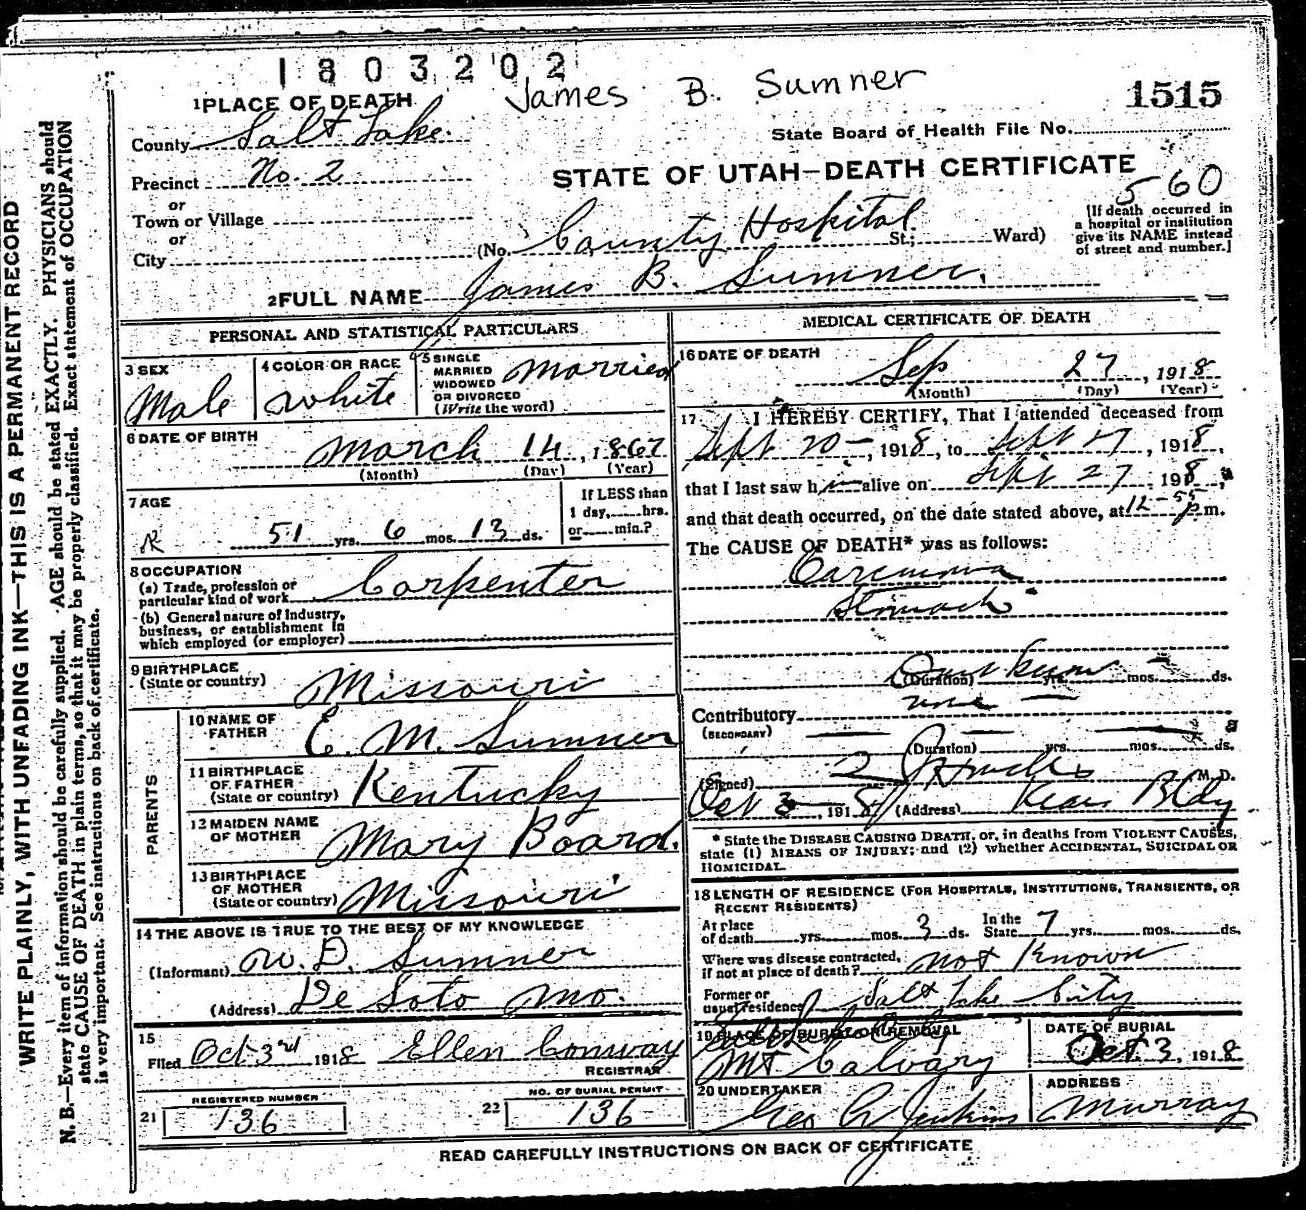 1803202
James B. Sumner
1515
1 PLACE OF DEATH
County Salt Lake.
State Board of Health File No.
Precinct No. 2
STATE OF UTAH—DEATH CERTIFICATE
560
or
Town or Village
or
City
(No. County Hospital St.; Ward)
[If death occurred in
a hospital or institution
give its NAME instead
of street and number.]
2 FULL NAME James B. Sumner.
PERSONAL AND STATISTICAL PARTICULARS
3 SEX
Male
4 COLOR OR RACE
White
5 SINGLE
MARRIED
WIDOWED
OR DIVORCED
(Write the word)
Married
6 DATE OF BIRTH
March 14, 1867
(Month) (Day) (Year)
7 AGE
51 yrs. 6 mos. 13 ds.
If LESS than
1 day, hrs.
or min.?
8 OCCUPATION
(a) Trade, profession or
particular kind of work Carpenter
(b) General nature of industry,
business, or establishment in
which employed (or employer)
9 BIRTHPLACE
(State or country) Missouri
PARENTS
10 NAME OF
FATHER E. M. Sumner
11 BIRTHPLACE
OF FATHER
(State or country) Kentucky
12 MAIDEN NAME
OF MOTHER Mary Board.
13 BIRTHPLACE
OF MOTHER
(State or country) Missouri
14 THE ABOVE IS TRUE TO THE BEST OF MY KNOWLEDGE
(Informant) W. D. Sumner
(Address) De Soto Mo.
15
Filed Oct 3rd 1918 Ellen Conway
REGISTRAR
REGISTERED NUMBER
21 136
NO. OF BURIAL PERMIT
22 136
MEDICAL CERTIFICATE OF DEATH
16 DATE OF DEATH
Sep 27, 1918
(Month) (Day) (Year)
17 I HEREBY CERTIFY, That I attended deceased from
Sept 20, 1918, to Sept 27, 1918,
that I last saw him alive on Sept 27 1918,
and that death occurred, on the date stated above, at 12-55 P m.
The CAUSE OF DEATH* was as follows:
Carcinoma
Stomach
(Duration) Dont know yrs. mos. ds.
Contributory none
(SECONDARY)
(Duration) yrs. mos. ds.
(Signed) M. D.
Oct 3, 1918 (Address) Kearns Bldg
* State the DISEASE CAUSING DEATH, or, in deaths from VIOLENT CAUSES,
state (1) MEANS OF INJURY; and (2) whether ACCIDENTAL, SUICIDAL OR
HOMICIDAL.
18 LENGTH OF RESIDENCE (FOR HOSPITALS, INSTITUTIONS, TRANSIENTS, OR
RECENT RESIDENTS)
At place
of death yrs. mos. 3 ds. In the
State 7 yrs. mos. ds.
Where was disease contracted,
if not at place of death? Not Known
Former or
usual residence Salt Lake City
19 PLACE OF BURIAL OR REMOVAL
Mt Calvary
DATE OF BURIAL
Oct. 3, 1918
20 UNDERTAKER
Geo A Jenkins
ADDRESS
Murray
READ CAREFULLY INSTRUCTIONS ON BACK OF CERTIFICATE
WRITE PLAINLY, WITH UNFADING INK—THIS IS A PERMANENT RECORD
N. B.—Every item of information should be carefully supplied. AGE should be stated EXACTLY. PHYSICIANS should
state CAUSE OF DEATH in plain terms, so that it may be properly classified. Exact statement of OCCUPATION
is very important. See instructions on back of certificate.